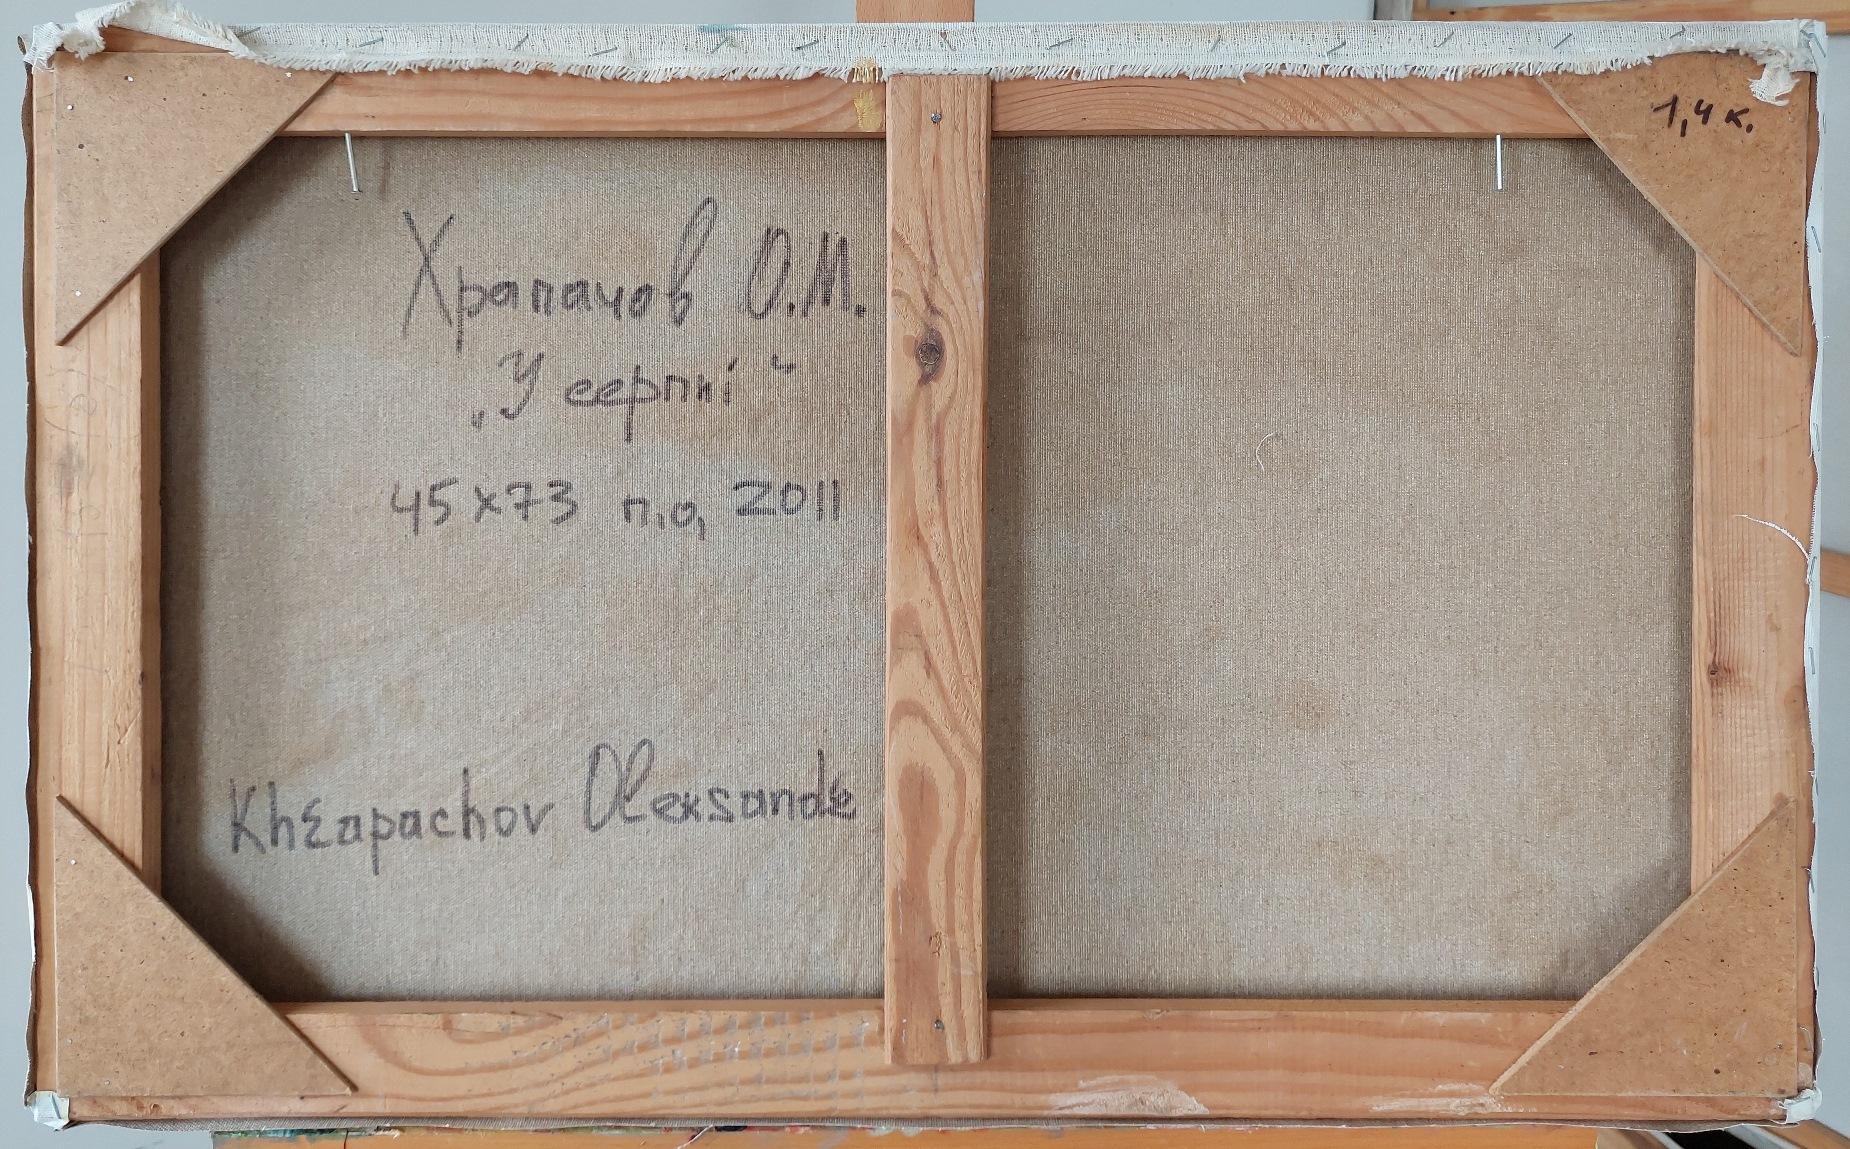 Храпачов О.М.
„У серпні“
45х73 п,о, 2011
Khrapachov Oleksandr
1,4 к.